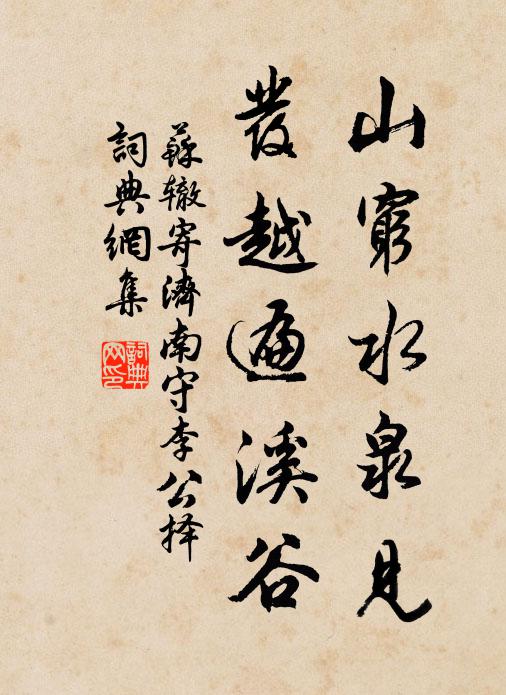 山窮水泉見
發越遍溪谷
蘇辙寄濟南守李公择
詞典網集
詞典網印